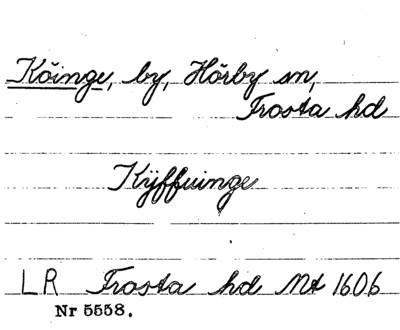 Köinge, by, Hörby sn,
Frosta hd
Kÿffuinge
LR Frosta hd Mt 1606
Nr 5558.